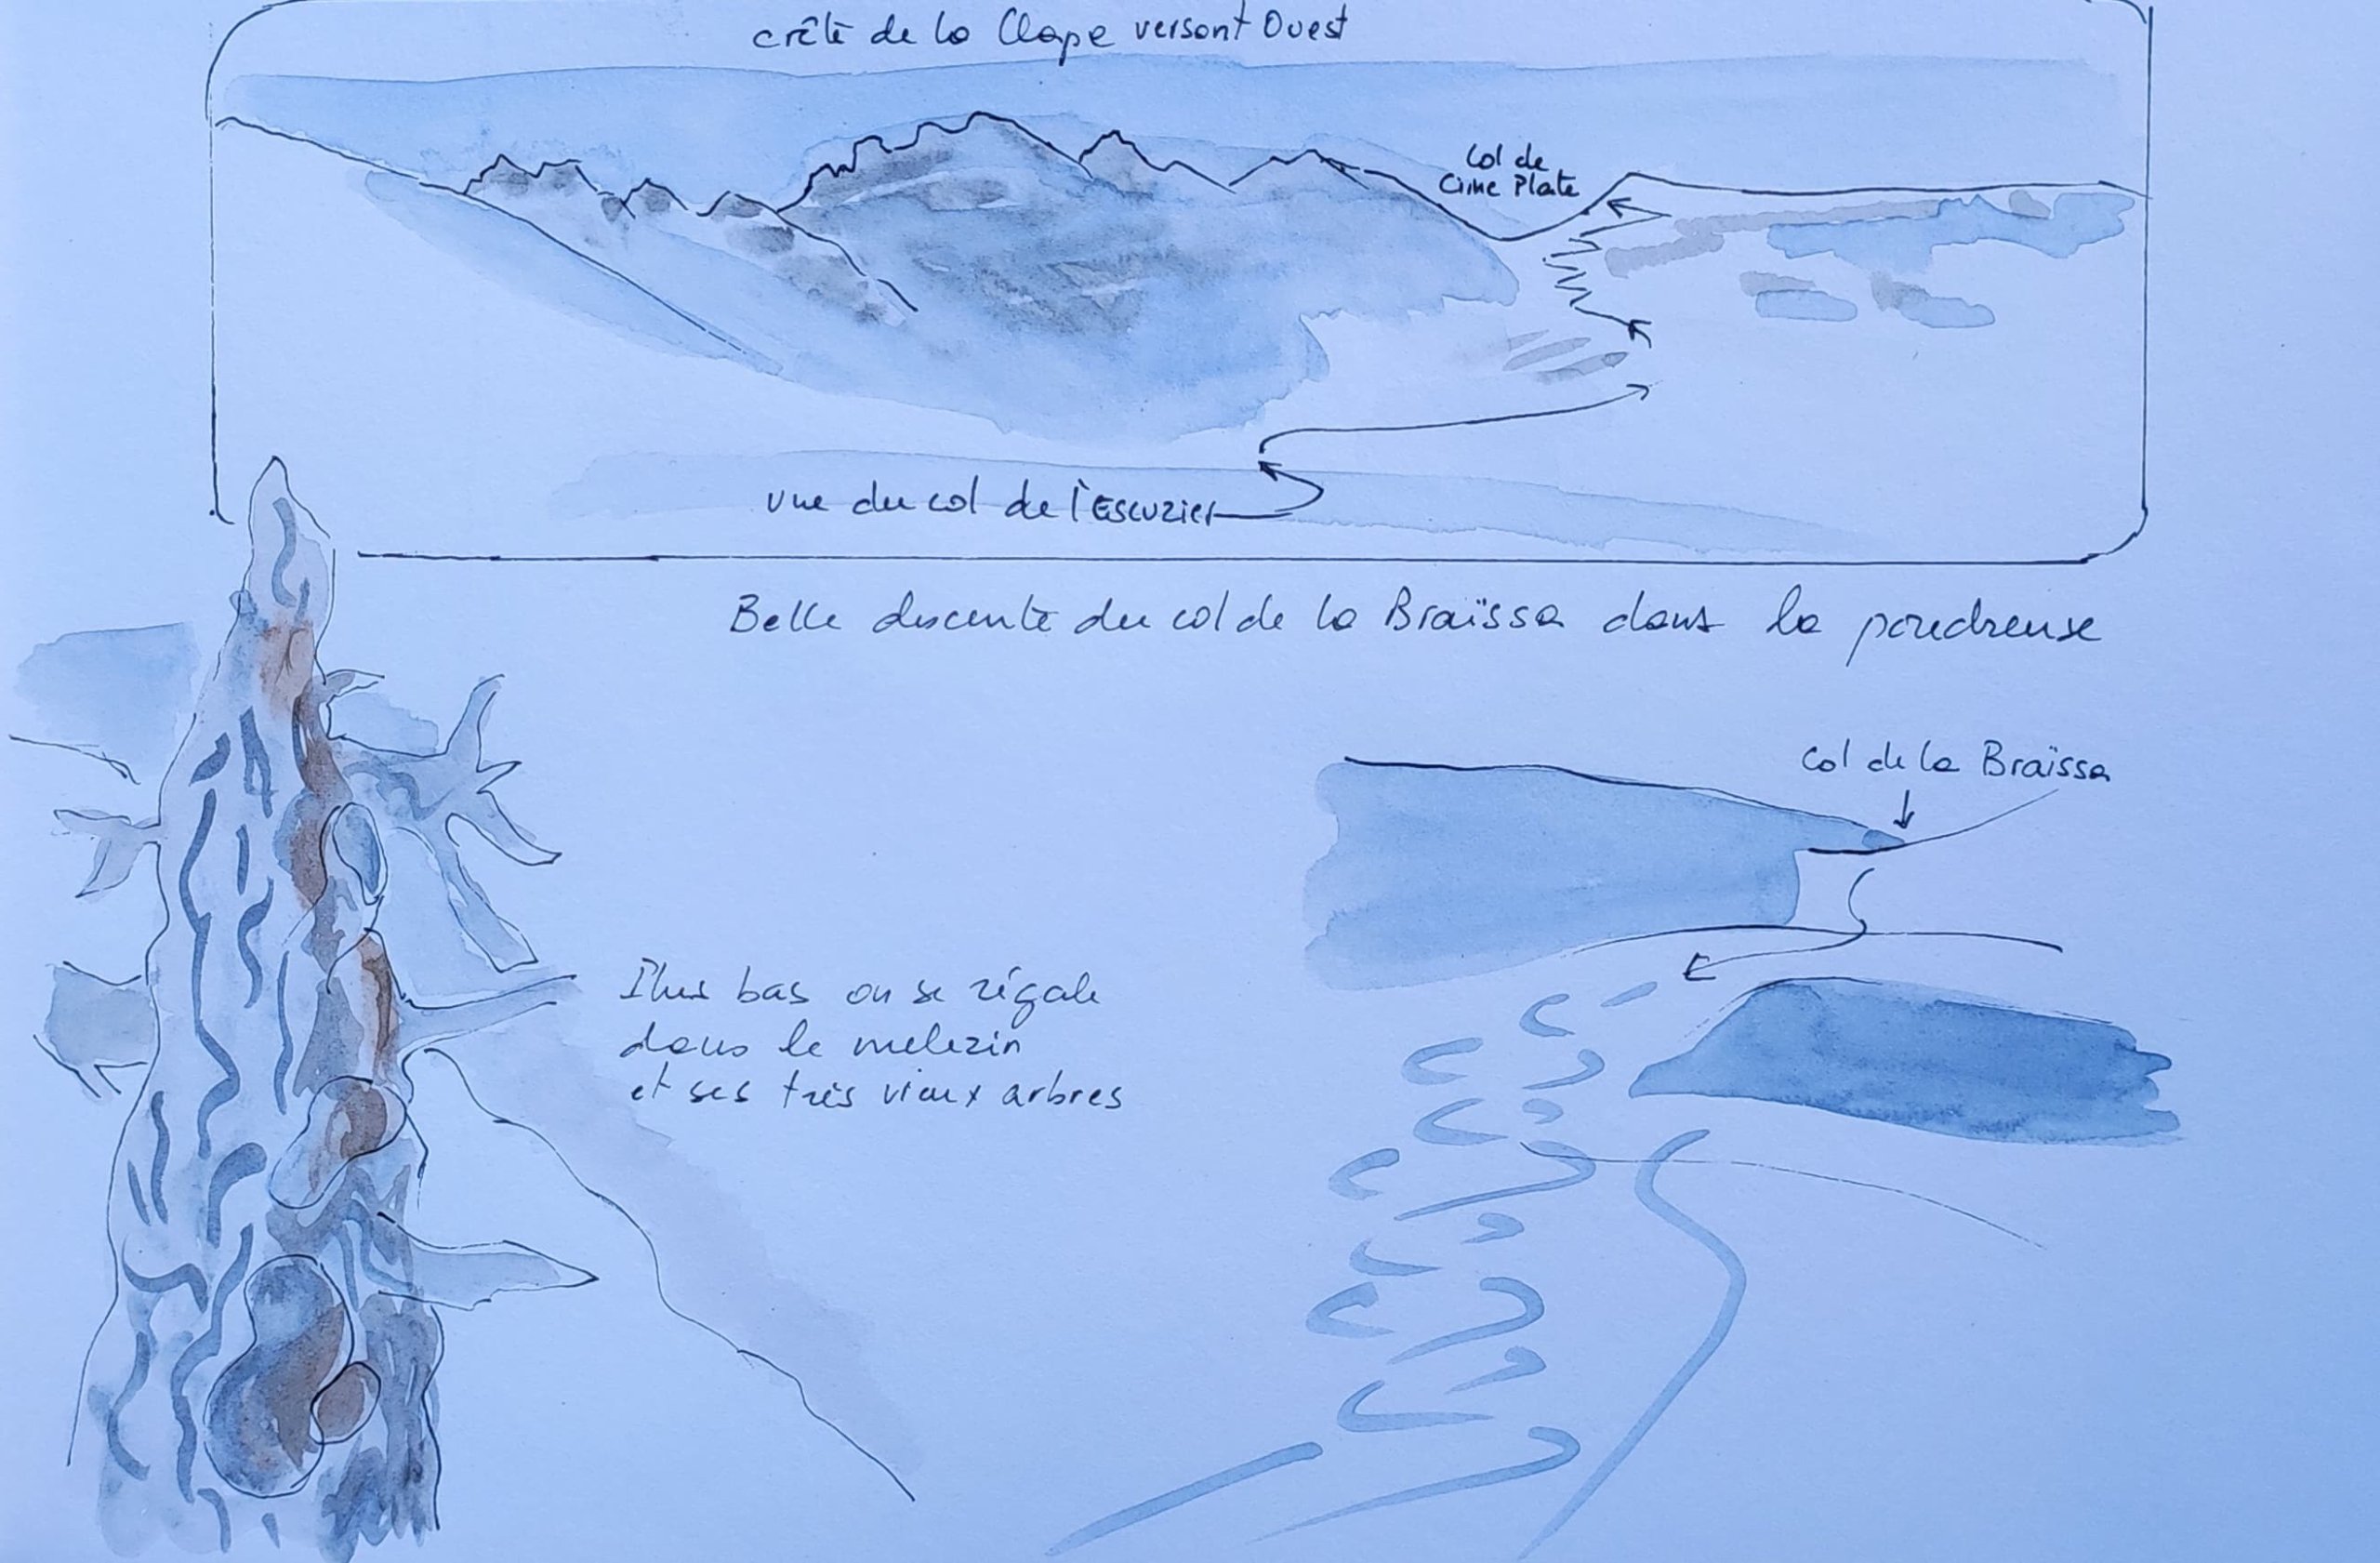 crête de la Clape versant Ouest
Col de
Cime Plate
vue du col de l'Escuzier
Belle descente du col de la Braïssa dans la poudreuse
Col de la Braïssa
Plus bas on se régale
dans le melezin
et ses très vieux arbres